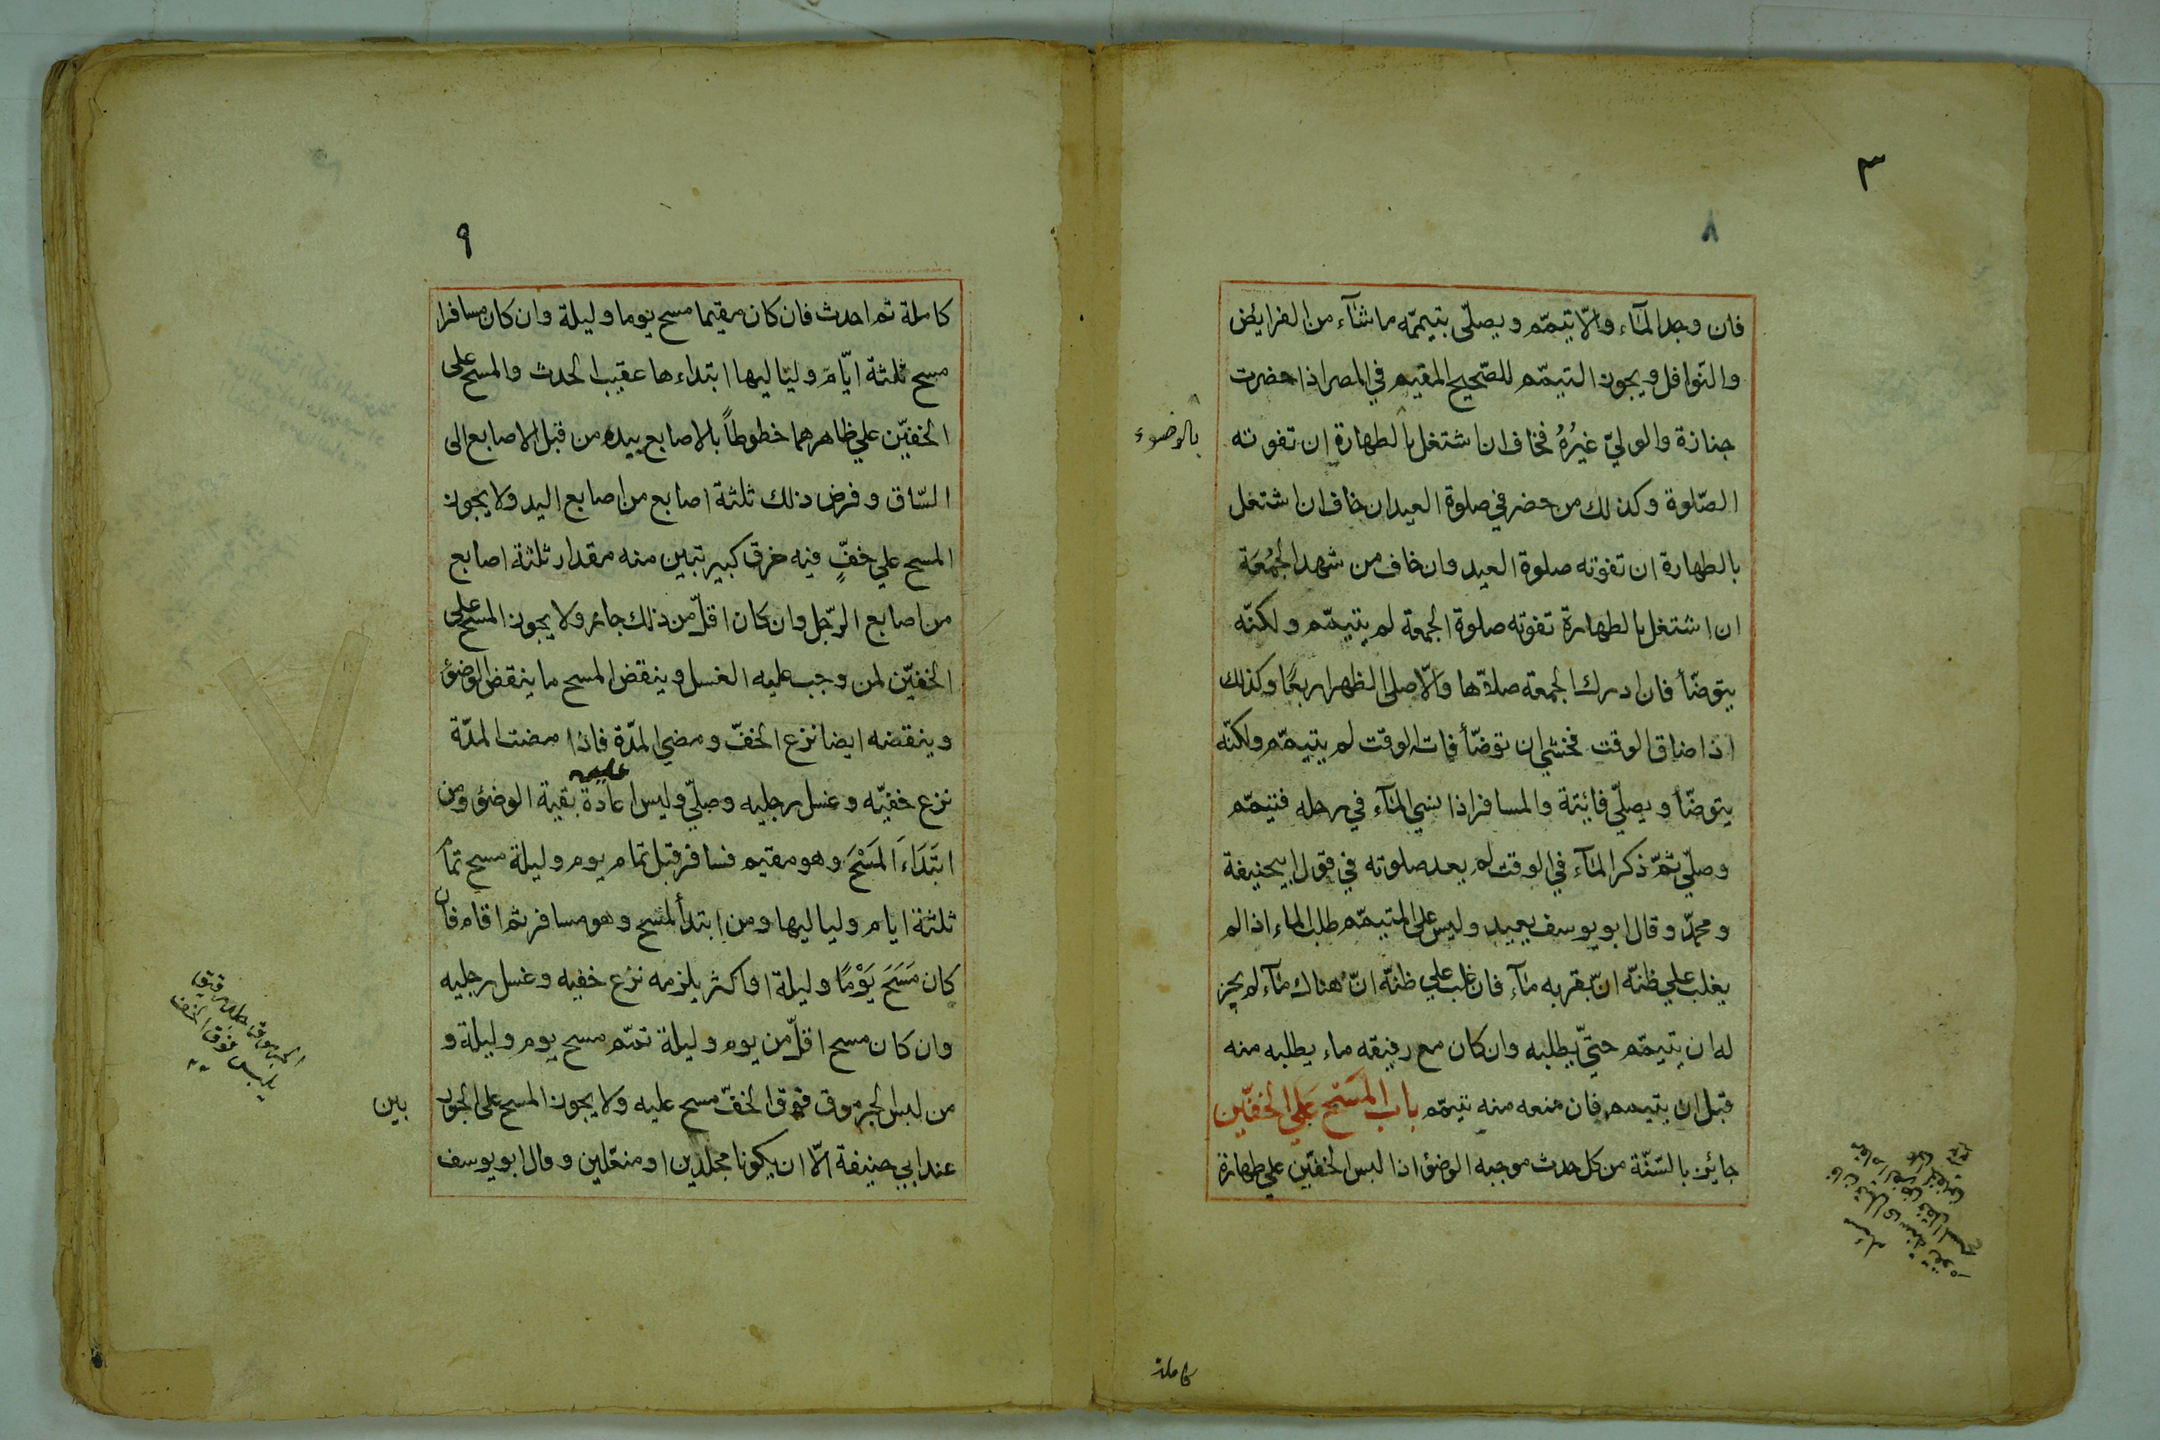 ٣
٨
فان وجد المآء والّا تيمّم ويصلّى بتيممّه ما شآء من الفرايض
والنّوافل ويجوز التيمّم للصّحيح المقيم في المصر اذا حضرت
جنازة والوليّ غيرُهُ فخاف ان اشتغل بالطهارة ان تفوته
بالوضوء
الصّلوة وكذلك من حضر في صلوة العيد ان خاف ان اشتغل
بالطهارة ان تفوته صلوة العيد وان خاف من شهد الجُمُعَة
ان اشتغل بالطهارة تفوته صلوة الجمعة لم يتيمّم ولكنّه
يتوضّأ فان ادرك الجمعة صلاّها والّا صلى الظهر اربعًا وكذلك
اذا ضاق الوقت فخشي ان توضّأ فات الوقت لم يتيمّم ولكنّه
يتوضّأ ويصلّي فائتة والمسافر اذا نسي المآء في رحله فتيمّم
وصلّي ثمّ ذكر المآء في الوقت لم يعد صلوته في قول ابيحنيفة
ومحمّد وقال ابو يوسف يعيد وليس على المتيمّم طلب الماء اذا لم
يغلب علي ظنّه انّ بقربه مآء فان غلب علي ظنّه انّ هناك مآء لم يجز
له ان يتيمّم حتيّ يطلبه وان كان مع رفيقه ماء يطلبه منه
قبل ان يتيمم فان منعه منه تيمّم باب المَسْح عَلَي الخفّين
جايئز بالسّنّة من كل حدث موجبه الوضؤ اذا لبس الخفّين علي طهارة
كاملة
٩
كاملة ثم احدث فان كان مقيما مسح يوما وليلة وان كان مسافرا
مسح ثلثة ايّام ولياليها ابتداءها عقيب الحدث والمسح على
الخفيّن علي ظاهرهما خطوطاً بالاصابع بيده من قبل الاصابع الى
السّاق وفرض ذلك ثلثة اصابع من اصابع اليد ولا يجوز
المسح علي خفٍّ فيه خرق كبير تبين منه مقدار ثلثة اصابع
من اصابع الرّجل وان كان اقلّ من ذلك جاز ولا يجوز المسح على
الخفيّن لمن وجب عليه الغسل وينقض المسح ما ينقض الوضؤ
وينقضه ايضا نزع الخفّ ومضي المدّة فاذا مضت المدّة
نزع خفيّه وغسل رجليه وصلّي وليس عليه اعادة بقية الوضؤ ومن
ابَتَدَاءَ المَسْحَ وهو مقيم فسافر قبل تمام يوم وليلة مسح تمام
ثلثة ايام ولياليها ومن ابتدأ المسح وهو مسافر ثم اقام فان
كان مَسَحَ يَوْمًا وليلة او اكثر يلزمه نزع خفيه وغسل رجليه
وان كان مسح اقلّ من يوم وليلة تمّم مسح يوم وليلة و
من لبس الجرموق فوق الخفّ مسح عليه ولا يجوز المسح على الجور
بين
عند ابي حنيفة الّا ان يكونا مجلدين او منعّلين وقال ابو يوسف
يلبس فوق الخف